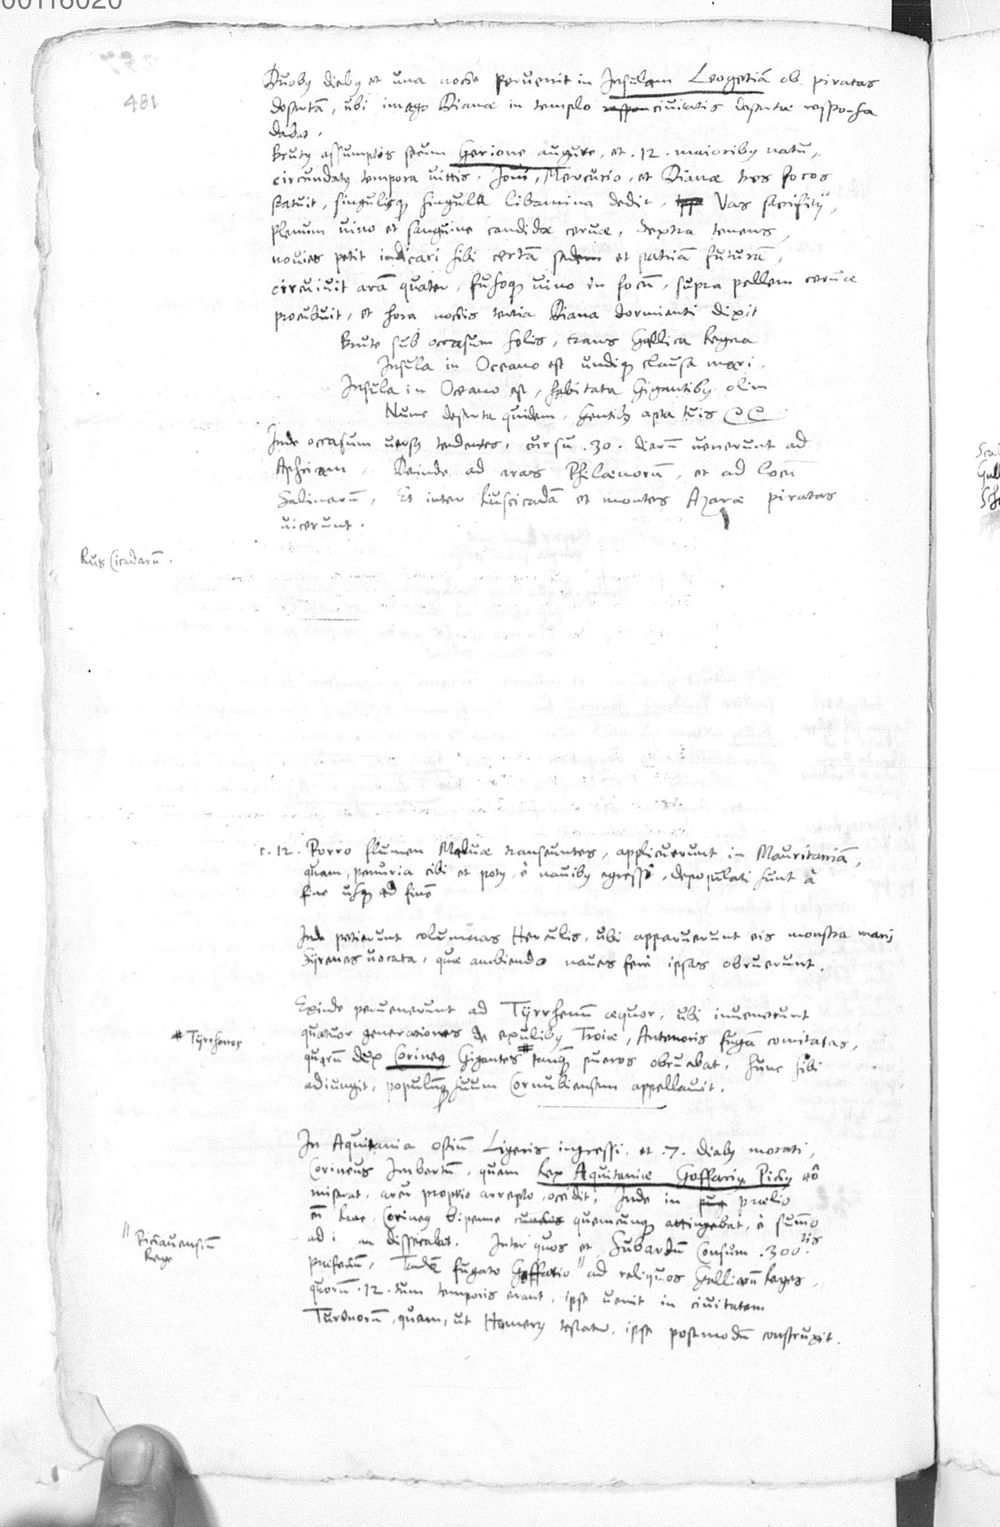 00116020
481
Duobꝰ diebꝰ et una nocte peruenit in Insulam Leogetiā ob piratas
desertā, ubi imago Dianæ in templo respon ciuitatis desertæ responsa
dabat.
Brutꝰ assumptis secum Gerione augure, et .12. maioribꝰ natu,
circundatꝰ tempora uittis, Joui, Mercurio, et Dianæ tres focos
statuit, singulisqꝫ singula libamina dedit, Vas sacrificij,
plenum uino et sanguine candidæ ceruæ, dextra tenens,
nouies petit indicari sibi certā sedem et patriā futurā,
circuiuit arā quater, fusoqꝫ uino in focū, supra pellem ceruæ
procubuit, et hora noctis tertia Diana dormienti dixit
Brute sub occasum solis, trans Gallica Regna
Insula in Oceano est undiqꝫ clausa mari.
Insula in Oceano est, habitata Gigantibꝰ olim
Nunc deserta quidem, Gentibꝰ apta tuis
Inde occasum uersꝰ tendentes, cursu .30. dierū uenerunt ad
Aphricam. Deinde ad aras Philænorū, et ad locū
Salinarū, Et inter Ruscicadā et montes Azaræ piratas
uicerunt.
Rus Cicadarū.
c. 12. Porro flumen Maluæ transeuntes, applicuerunt in Mauritaniā,
quam, penuria cibi et potꝰ, è nauibꝰ egressi, depopulati sunt à
fine usqꝫ ad finē
Inde petierunt columnas Herculis, ubi apparuerunt eis monstra maris
Syrenes uocata, quæ ambiendo naues ferè ipsas obruerunt.
Exinde peruenerunt ad Tyrrhenū æquor, ubi inuenerunt
quatuor generationes de exulibꝰ Troiæ, Antenoris fugā comitatas,
# Tyrrhenos
quarū dux Corineꝰ Gigantes # tanqꝫ pueros obruebat, hunc sibi
adiungit, populūqꝫ suum Cornubiensem appellauit.
In Aquitania ostiū Ligeris ingressi, et .7. diebꝰ morati,
Corineus Imbertū, quem Rex Aquitaniæ Goffariꝰ Pictꝰ eò
miserat, arcu proprio arrepto, occidit, Inde in prælio
Corineꝰ bipenne quemcunqꝫ attingebat, à sum̄o
ad dissecabat. Inter quos et Subardū Consum .300.tis
// Pictauensiū
Rege
præfectū, Tandē fugato Goffario // ad reliquos Gallicanū Reges,
quorū .12. tum temporis erant, ipse uenit in ciuitatem
Turonorū, quam, ut Homerꝰ testatur, ipse postmodū construxit.